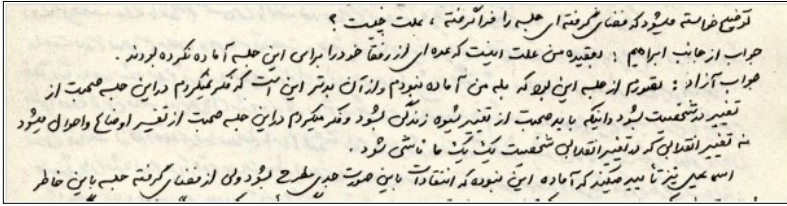 توضیح خواسته میشود که فضای گرفته ای جلسه را فرا گرفته، علت چیست؟
جواب از جانب ابراهیم: بعقیده من علت اینست که عده ای از رفقا خود را برای این جلسه آماده نکرده بودند.
جواب آزاد: تصورم از جلسه این بود که بله من آماده نبودم و از آن بدتر این است که فکر نمیکردم در این جلسه صحبت از
تغییر در شخصیت بشود و اینکه باید صحبت از تغییر شیوه زندگی بشود و فکر میکردم در این جلسه صحبت از تغییر اوضاع و احوال میشود
نه تغییر انقلابی که در تغییر انقلابی شخصیت یک یک ما ناشی شود.
اسمعیل نیز تأیید میکند که آماده این نبوده که انتقادات باین صورت جدی مطرح بشود ولی از فضای گرفته جلسه باین خاطر